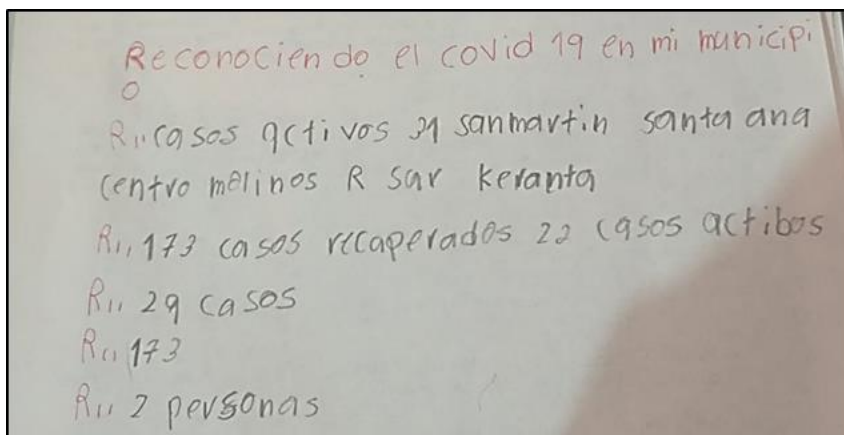 Reconociendo el covid 19 en mi municipi
o
R,, casos activos 31 sanmartin santa ana
centro molinos R sur Keranta
R,, 173 casos recaperados 22 casos actibos
R,, 29 casos
R,, 173
R,, 2 personas